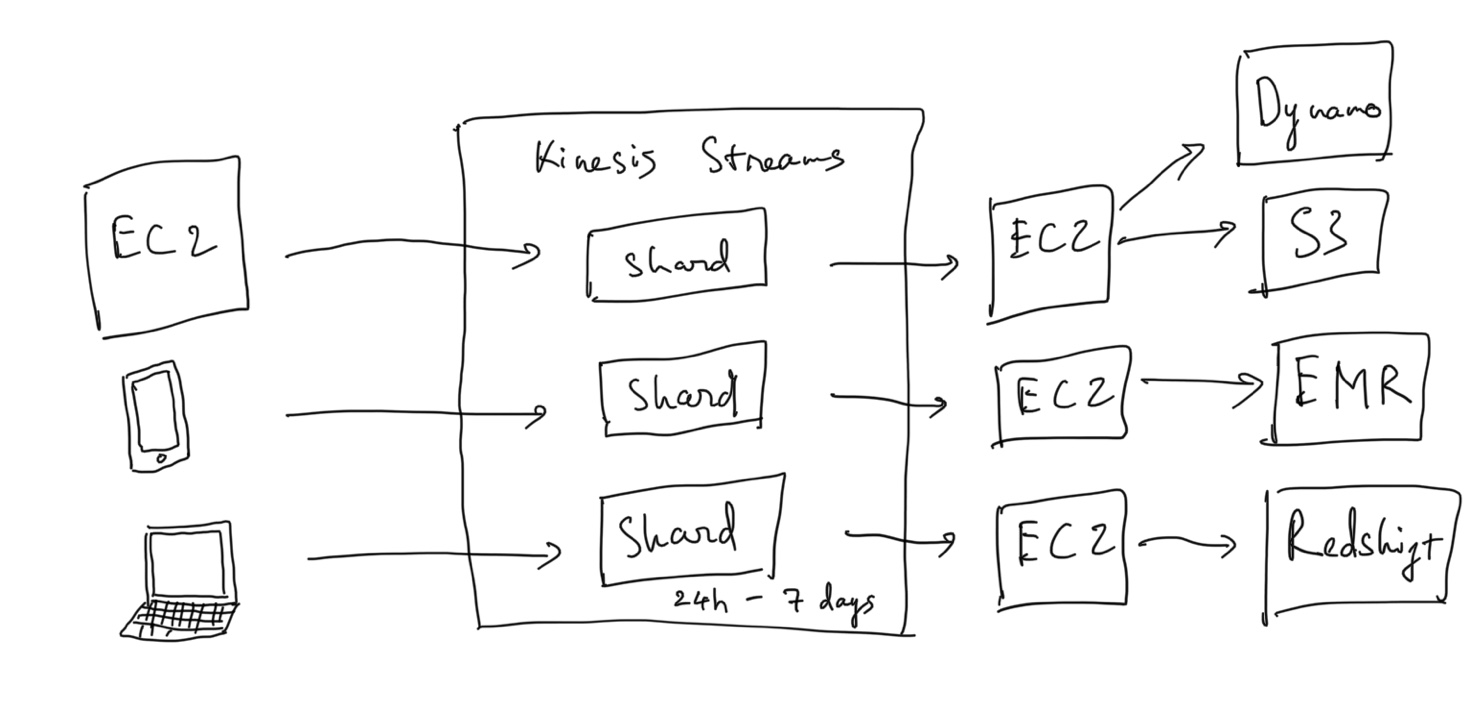 Kinesis Streams
EC2
shard
Shard
Shard
24h - 7 days
EC2
EC2
EC2
Dynamo
S3
EMR
Redshift